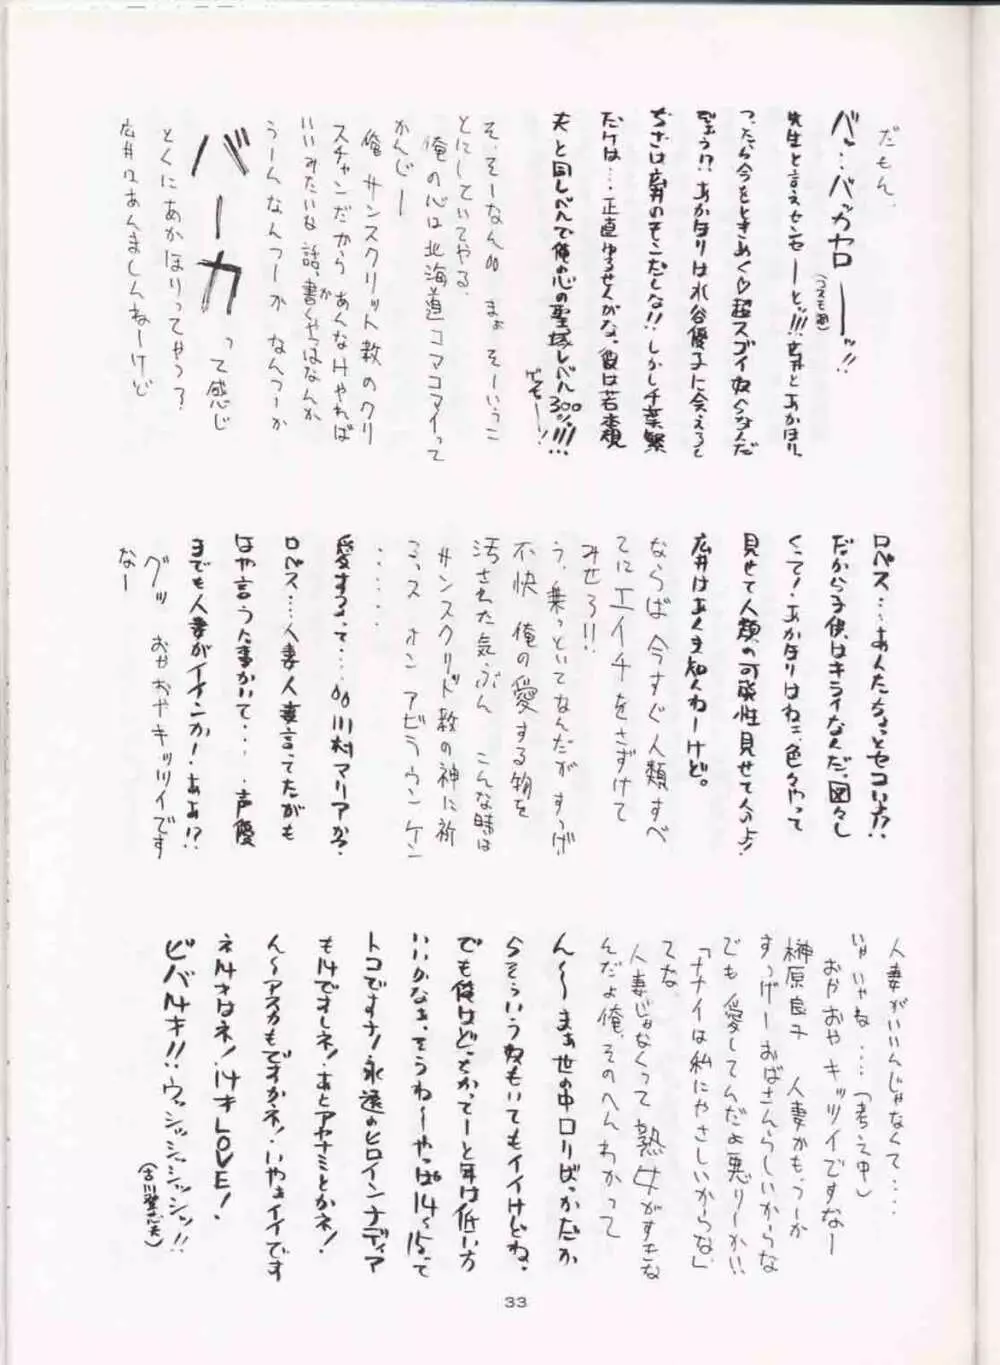 だもん。
バ…バッカヤローッ!!
先生と言えセンセーーとッ!!!広井とあかほり
ったら今をときめく♡超スゴイ奴らなんだ
ぞぉう!?あかほりは水谷優子に会えるって
しかし千葉繁
だけは…。正直ゆるせんがな。彼は若本規
夫と同レベルで俺の心の聖域レベル300%!!!
ゲッモーー!!
そ、そーなん。まぁそーいうこ
とにしていてやる。
俺の心は北海道コマコマイって
かんじー
俺 サンスクリット教のクリ
スチャンだから あんなけやれば
いいみたいな話、書くやつはなんか
うーんなんつーか なんつーか
バーカって感じ
とくにあかほりってやつ?
広井はあんましんねーけど
ロペス…あんたちょっとセコい!?
だから子供はキライなんだ。図々し
くって!あかほりはねェ、色々やって
見せて人類の可能性見せて
広井はあくま知んねーけど。
ならば 今すぐ人類すべ
てにエイチをさずけて
みせろ!!
う、乗っといてなんだが すっげー
不快 俺の愛する物を
汚された気ぶん こんな時は
サンスクリット教の神に祈
アビラウンケン
・・・・・
愛するって…川村マリアか?
ロペス…人妻人妻言ってたがも
はや言うた事かいて…。声優
までも人妻がイインか!ああ!?
グッ おやおやキッツイです
なー
人妻がいいんじゃなくて…
いや いやね…(考え中)
おやおや キッツイですなー
榊原良子 人妻かも、つーか
すっげーおばさんらしいからな
でも 愛してんだよ悪りーかい!
「ナナイは私にやさしいからな」
てな。
人妻じゃなくって 熟女がすきな
んだよ俺。そのへんわかって
ん〜〜まぁ世の中ロリばっかだか
らそういう奴もいてもイイけどね。
でも俺はどっちかってーと年は低い方
いいかなぁ。そうねーやっぱ14〜15って
トコですナ!永遠のヒロインナディア
も14ですしネ!あとアヤナミとかネ!
ん〜アスカもですかネ!いやぁイイです
ネ14才はネ!14才LOVE!
ビバ14才!!ウッシッシッシッシッ!!
(古川登志夫)
33